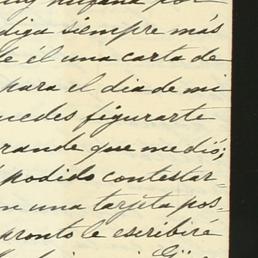 muy ufana por
diga siempre más
de él una carta de
para el dia de mi
uedes figurarte
grande que me dió;
podido contestar-
on una tarjeta pos-
pronto le escribiré